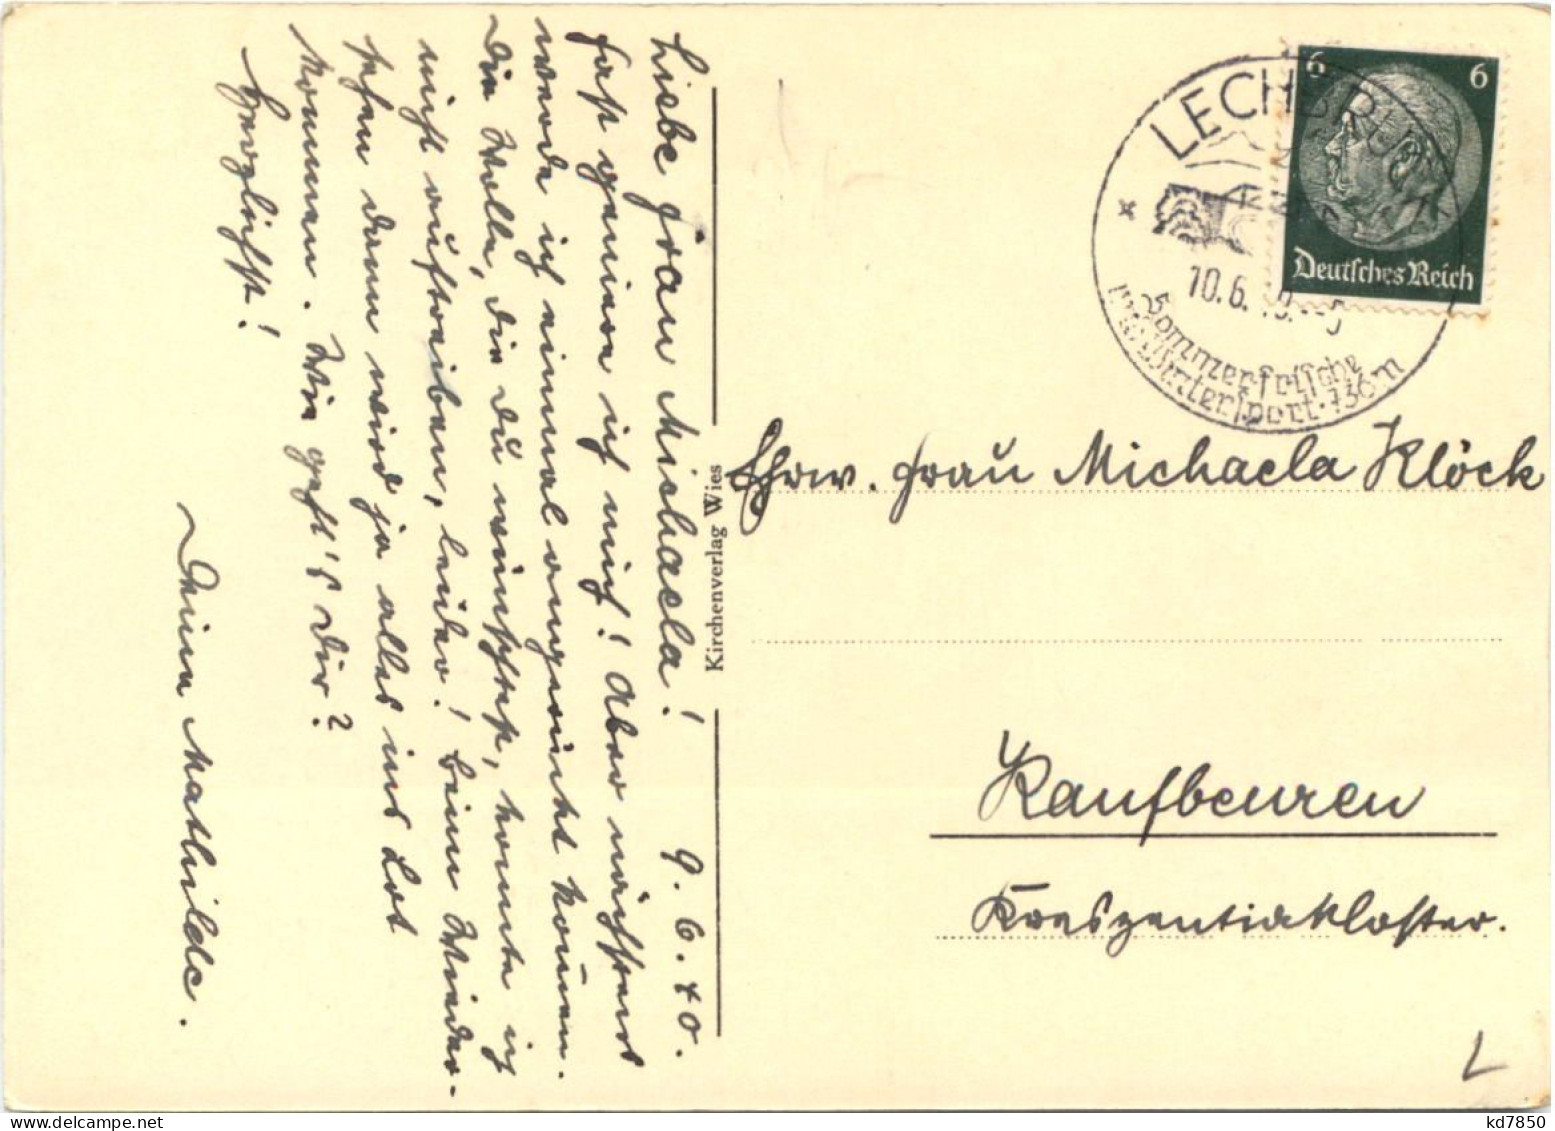 Liebe Frau Michaela! 9.6.40.
Fast geniere ich mich! Aber nächstens
werde ich einmal angerückt kommen.
Die Wolle, die du wünschst, konnte ich
nicht auftreiben, leider! Beim Wieder-
sehen dann wird ja alles ins Lot
kommen. Wie geht's Dir?
Herzlichst!
Deine Mathilde.
Kirchenverlag Wies
LECHBRUCK
10.6.
Sommerfrische
Wintersport 730m
6 6
Deutsches Reich
Ehrw. Frau Michaela Klöck
Kaufbeuren
Kreszentiakloster.
L
kd7850